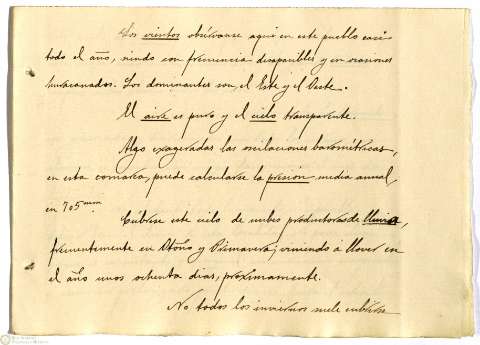 Los vientos obsérvanse aquí en este pueblo casi
todo el año, siendo con frecuencia desapacibles y en ocasiones
huracanados. Los dominantes son, el Este y el Oeste.
El aire es puro y el cielo transparente.
Algo exageradas las oscilaciones barométricas,
en esta comarca, puede calcularse la presión media anual,
en 705 mm.
Cúbrese este cielo de nubes productoras de lluvia,
frecuentemente en Otoño y Primavera; viniendo a llover en
el año unos ochenta días, próximamente.
No todos los inviernos suele cubrirse